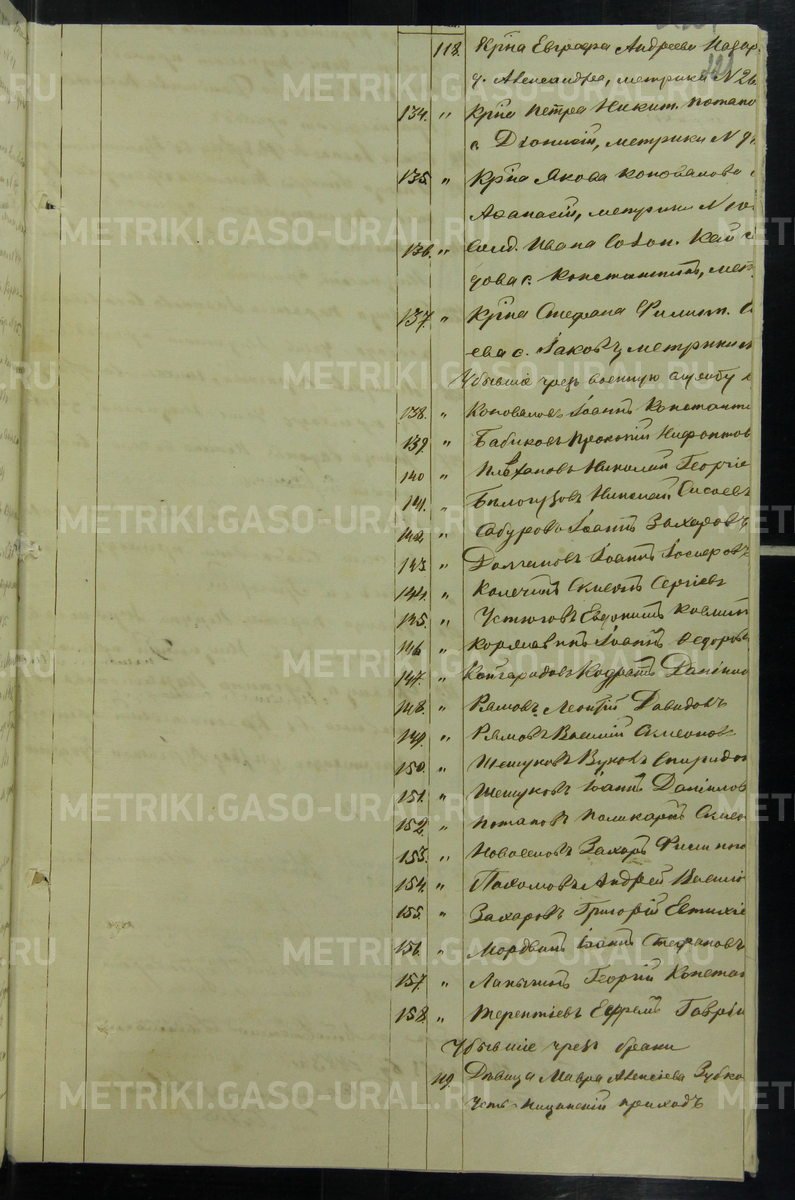 118. Крⷭ҇на Евграфа Андреева Назар
д. Александра, метрика N 26
134. " Крⷭ҇на Петра Никит. Потапо
с. Діонисій, метрики N 9
135. " Крⷭ҇на Якова Коновалова
Аѳанасій, метрики N 10
136. " Солд. Ивана Софон. Кай
дова с. Константинъ, мет
137. " Крⷭ҇на Стефана Филип.
ева с. Іаковъ, метрики
Убывшіе чрезъ военную службу
138. " Коноваловъ Іоаннъ Константи
139. " Бабиковъ Прокопій Нифонтов
140 " Плѣхановъ Николай Георгіе
141. " Бѣлогузовъ Николай Сысоевъ
142. " Сабуровъ Іоаннъ Захаровъ
143 " Долгановъ Іоаннъ Іосифовъ
144. " Калечинъ Симеонъ Сергіевъ
145. " Устюговъ Евдокимъ Косьмин
146 " Корявинъ Іоаннъ Ѳедоров
147. " Кайгародовъ Кодратъ Данило
148. " Рямовъ Леонтій Давидовъ
149. " Рямовъ Василій Симеонов
150. " Шешуковъ Вуколъ Спиридон
151. " Шешуковъ Іоаннъ Даніилов
152. " Потаповъ Поликарпъ Симео
153. " Новоселовъ Захаръ Филиппо
154. " Пахомовъ Андрей Васили
155. " Захаровъ Григорій Евтихіе
156. " Мордвинъ Іоаннъ Стефановъ
157. " Лапыгинъ Георгій Констан
158. " Терентіевъ Ефремъ Гаврии
Убывшіе чрезъ браки
119. Дѣвица Мавра Алексіева Зубко
Усть-Ницинскій приходъ
METRIKI.GASO-URAL.RU